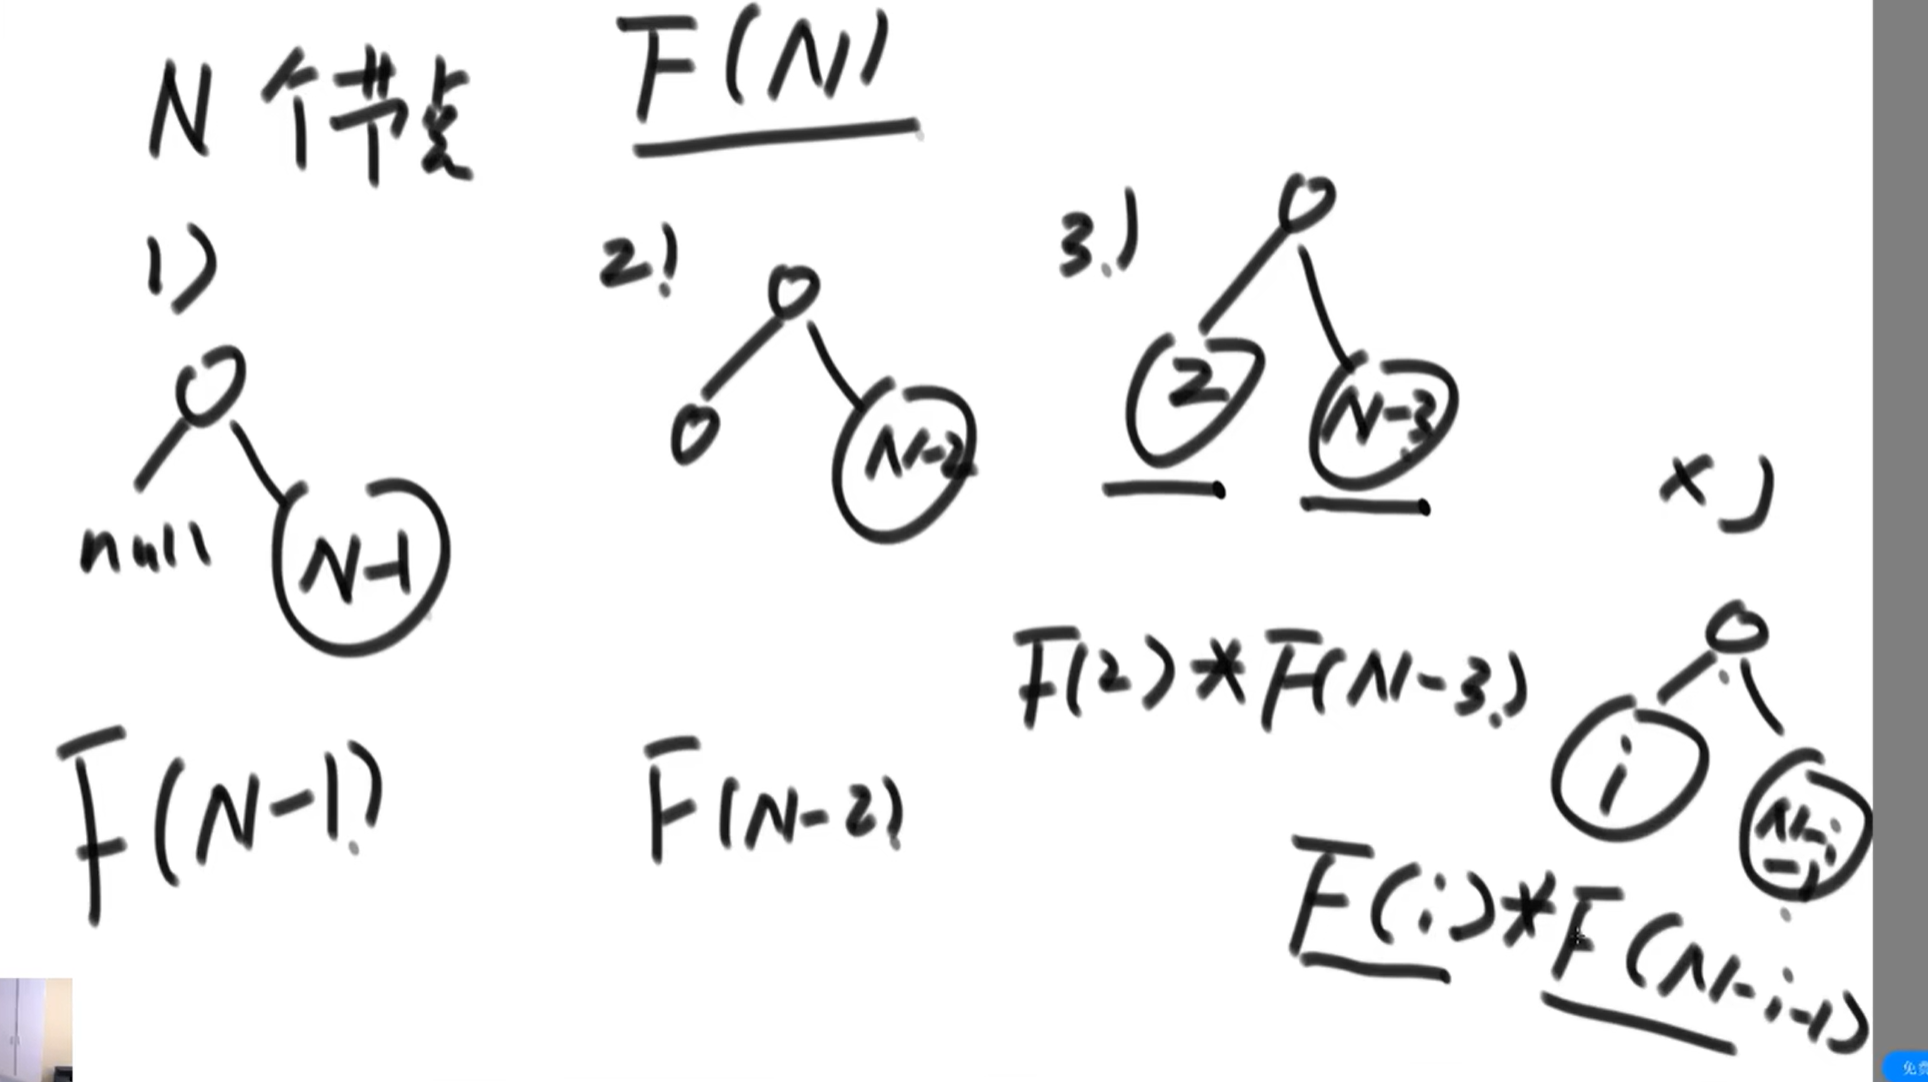 N 个节点
F(N)
1)
null
N-1
F(N-1)
2)
N-2
F(N-2)
3)
2
N-3
F(2)*F(N-3)
x)
i
N-i
-1
F(i)*F(N-i-1)
免费